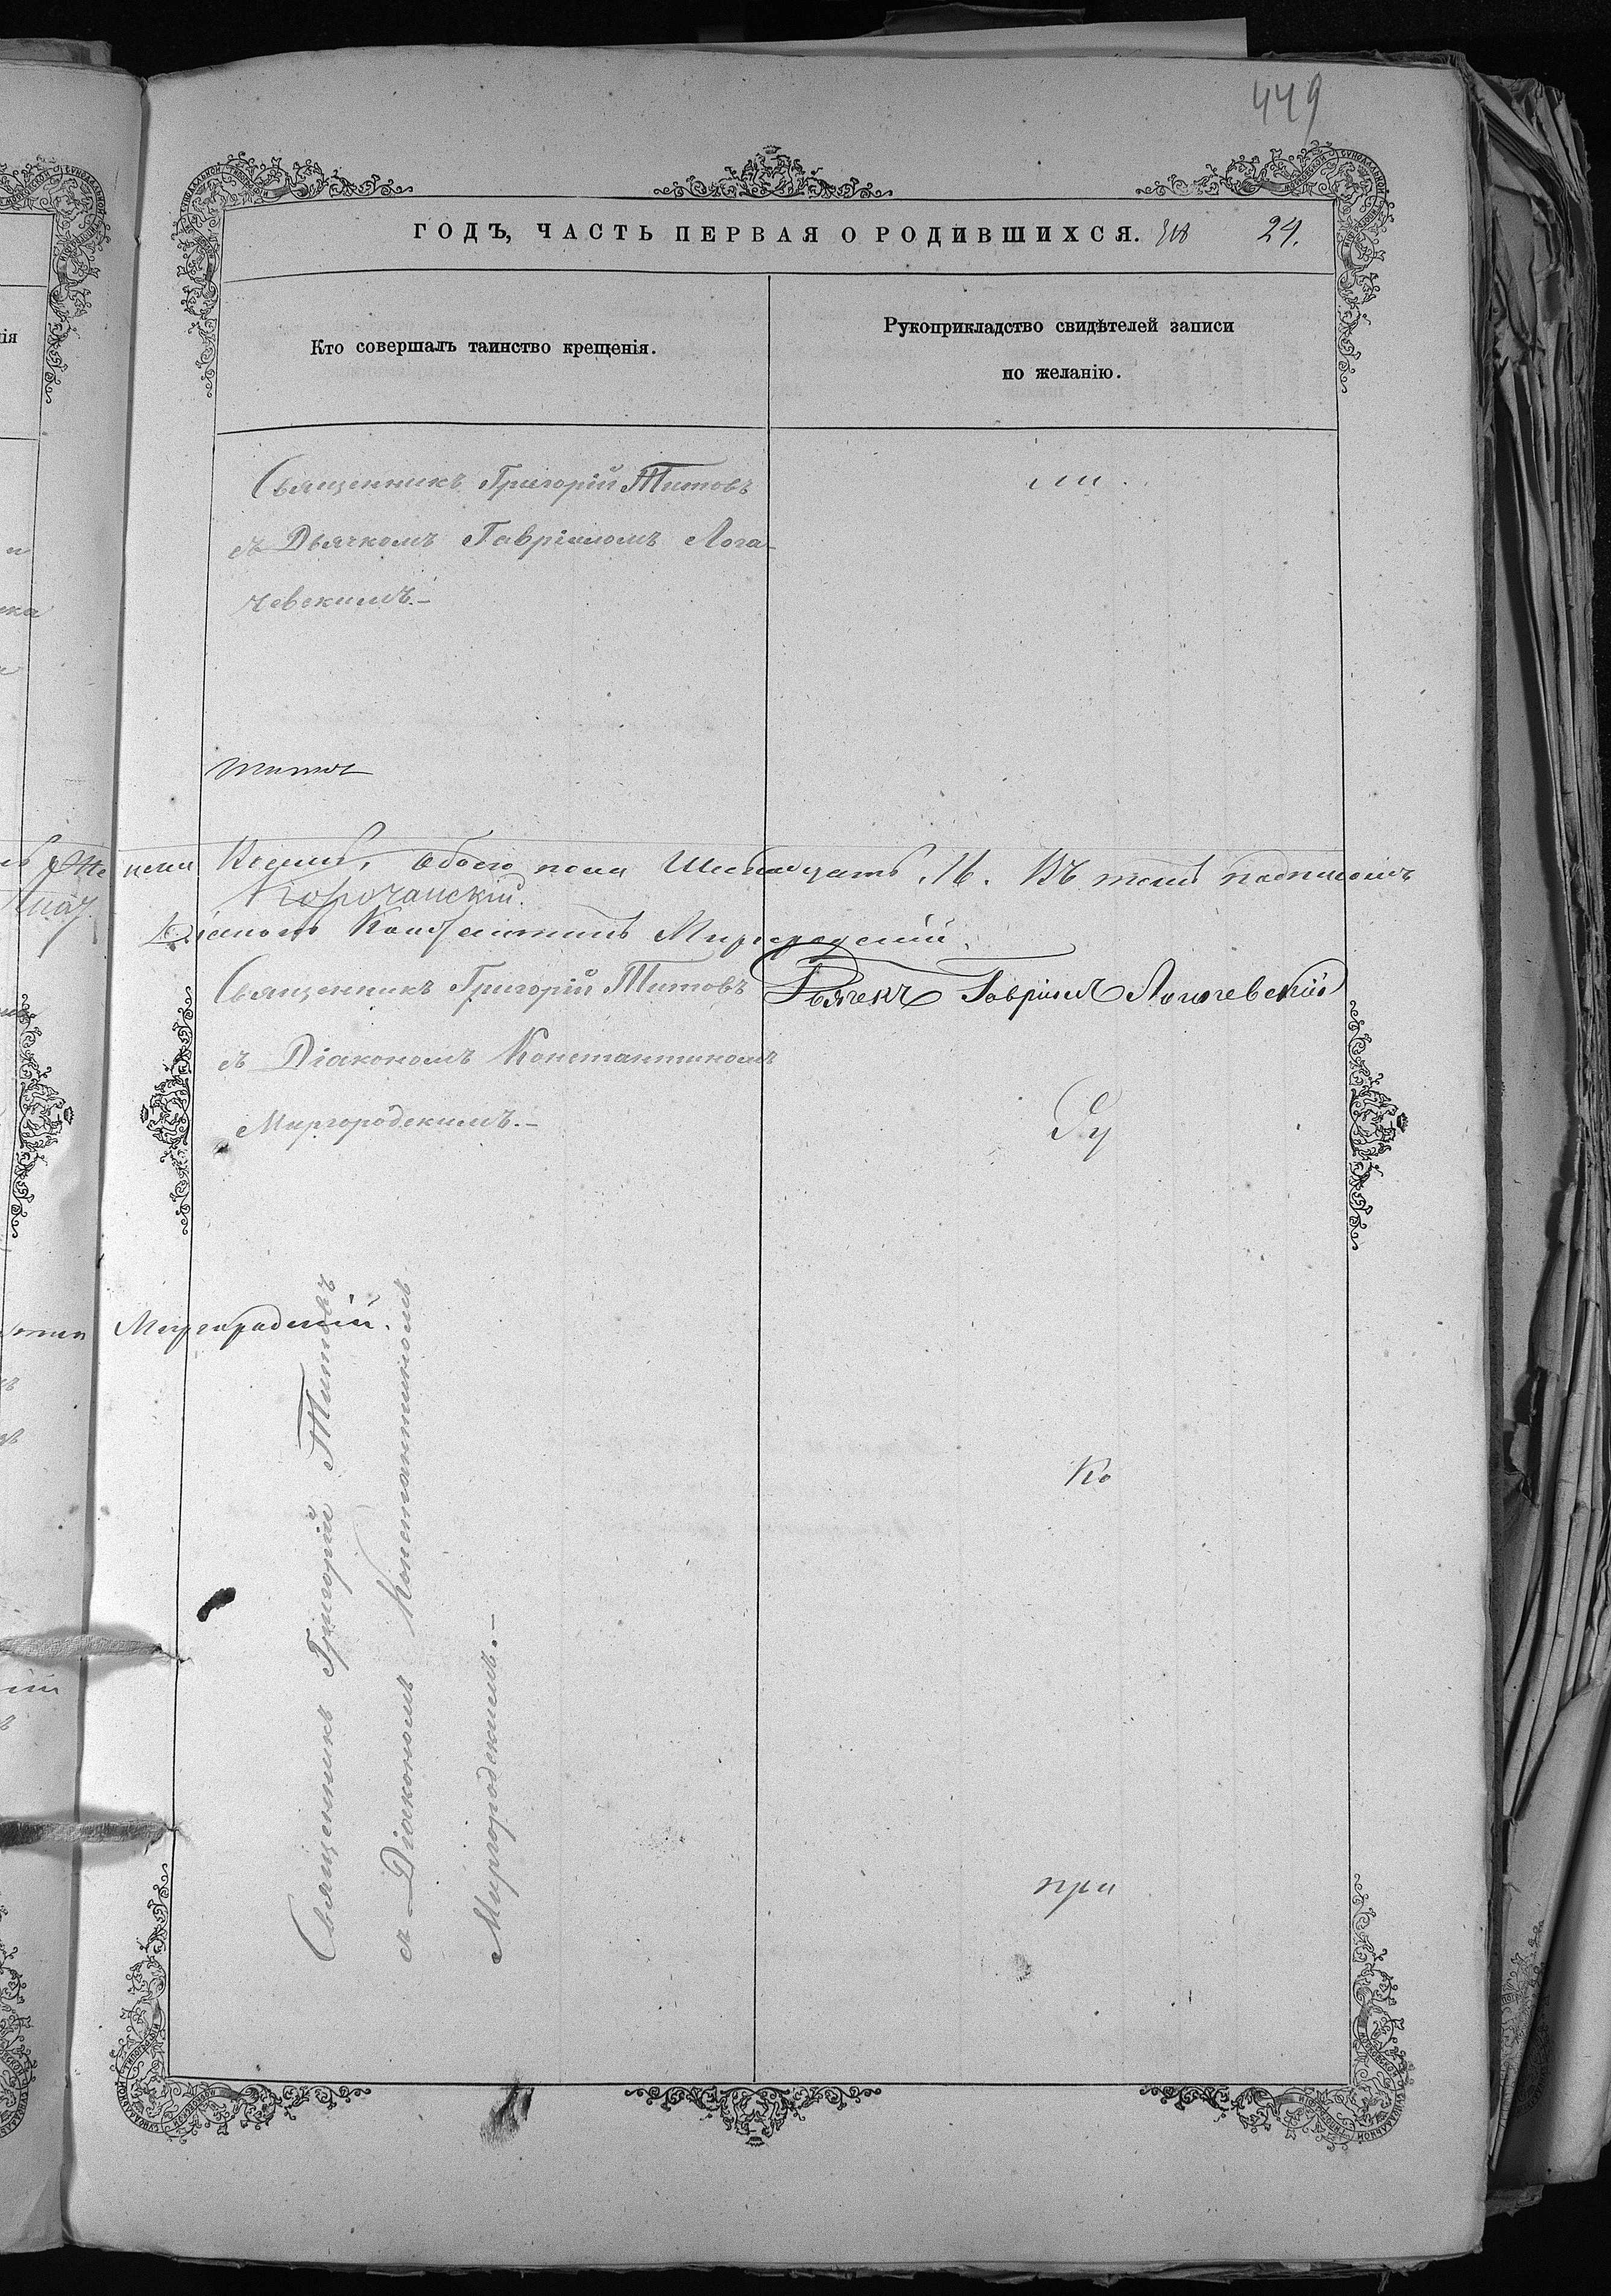 449
ГОДЪ, ЧАСТЬ ПЕРВАЯ О РОДИВШИХСЯ. 24.
Кто совершалъ таинство крещенія.
Рукоприкладство свидѣтелей записи
по желанію.
Священникъ Григорій Титовъ
съ Дьячкомъ Гавріиломъ Лога-
чевскимъ.-
ли.
Восемь, обоего пола Шестнадцать, 16. Въ томъ подписомъ
Корочанскій.
Діаконъ Константинъ Миргородскій.
Священникъ Григорій Титовъ
съ Діакономъ Константиномъ
Миргородскимъ.-
Дьячекъ Гавріилъ Логачевскій
Ру
Миргородскій.
Священникъ Григорій Титовъ
съ Діакономъ Константиномъ
Миргородскимъ.-
ко
при